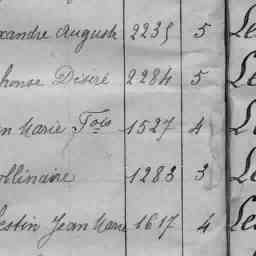 xandre August 2235 5 Le
honse Désiré 2284 5 Le
n Marie Fois 1527 4 L
ollinaire 1283 3 Le
estin Jean Marie 1617 4 Les